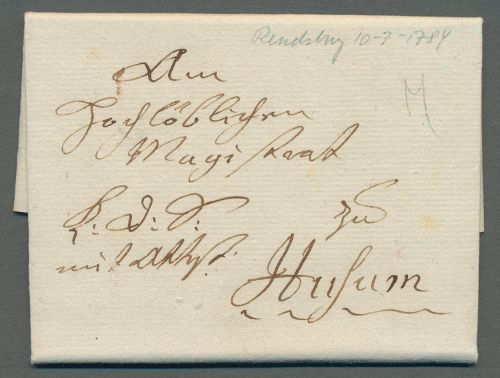 Rendsburg 10-7-1784
M
Am
Hochlöblichen
Magistrat
K: D: S: zu
mit Husum